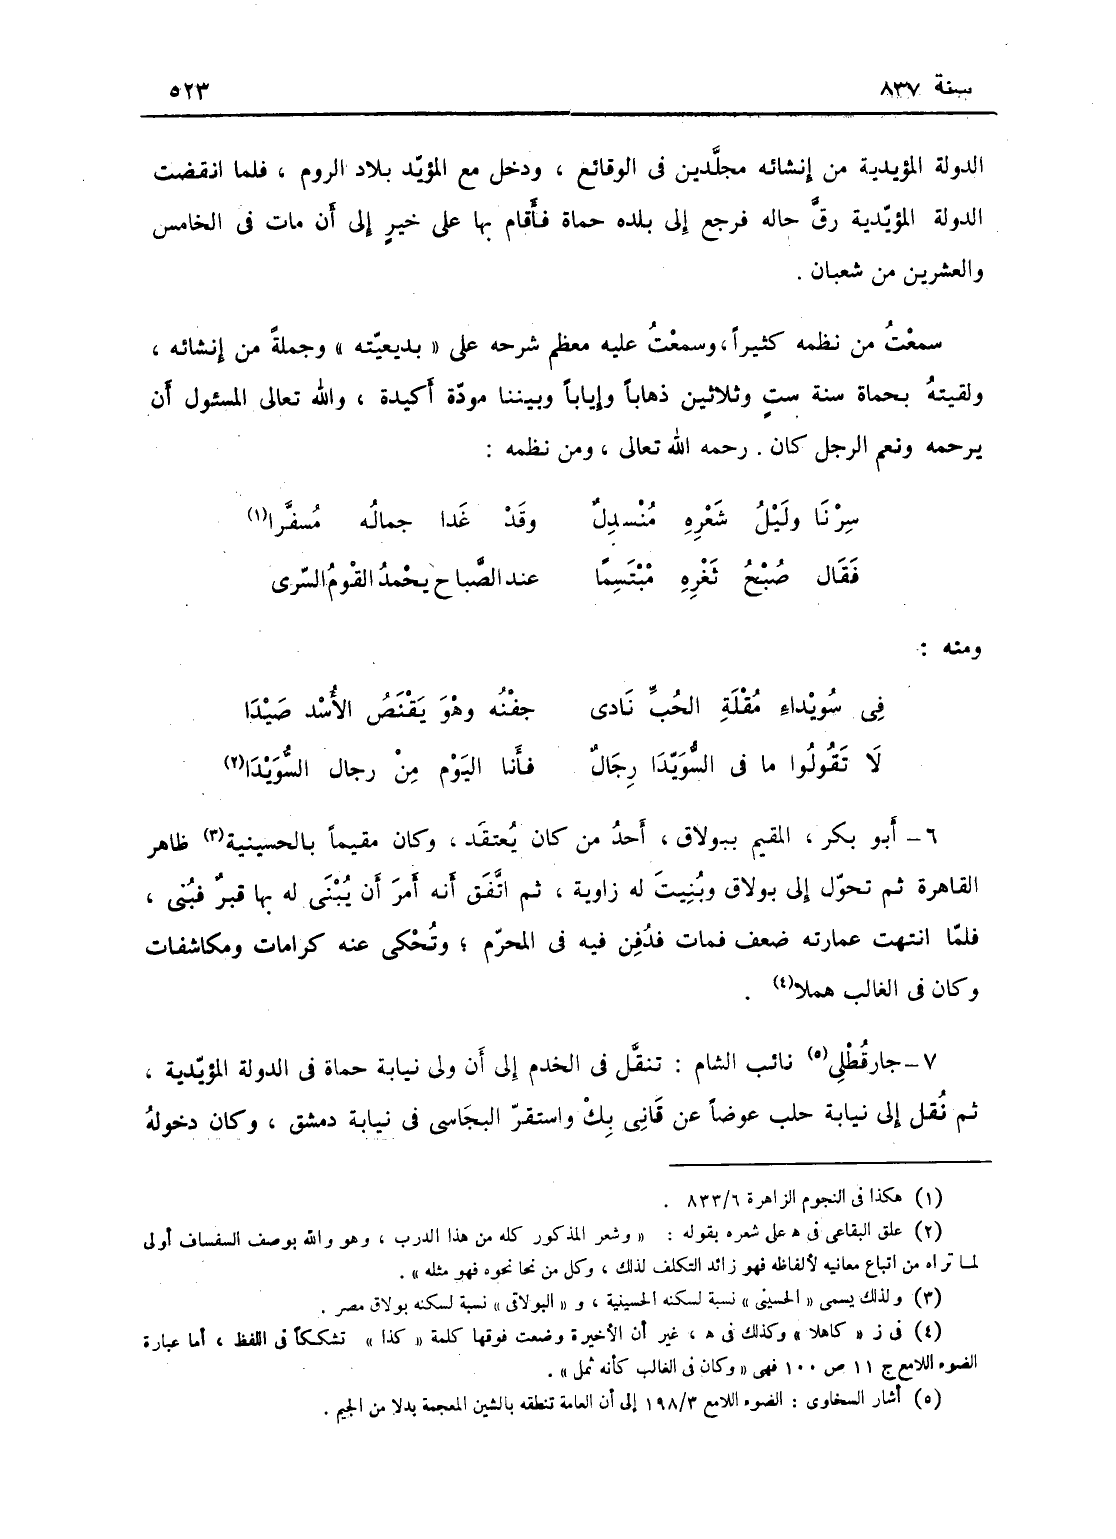 سنة ٨٣٧ ٥٢٣
الدولة المؤيدية من إنشائه مجلَّدين فى الوقائع ، ودخل مع المؤيّد بلاد الروم ، فلما انقضت
الدولة المؤيّدية رقَّ حاله فرجع إلى بلده حماة فأَقام بها على خيرٍ إلى أَن مات فى الخامس
والعشرين من شعبان .
سمعْتُ من نظمه كثيراً، وسمعْتُ عليه معظم شرحه على « بديعيّته » وجملةً من إنشائه ،
ولقيتهُ بحماة سنة ستٍ وثلاثين ذهاباً وإياباً وبيننا مودّة أَكيدة ، والله تعالى المسئول أَن
يرحمه ونعم الرجل كان . رحمه الله تعالى ، ومن نظمه :
سِرْنَا ولَيْلُ شَعْرِهِ مُنْسدِلٌ وقَدْ غَدا جمالُه مُسفَّرا(١)
فَقَال صُبْحُ ثَغْرِهِ مْبْتَسِمًا عند الصَّباح يحْمدُ القْومُ السّرى
ومنه :
فِى سُويْداءِ مُقْلَةِ الحُبِّ نَادى جفْنُه وهْوَ يَقْنَصُ الأُسْد صَيْدَا
لَا تَقُولُوا ما فى السُّوَيّدَا رِجَالٌ فأَنا اليَوْم مِنْ رجال السُّوَيْدَا(٢)
٦ – أَبو بكر ، المقيم ببولاق ، أَحدُ من كان يُعتقَد ، وكان مقيماً بالحسينية(٣) ظاهر
القاهرة ثم تحوّل إلى بولاق وبُنِيتَ له زاوية ، ثم اتَّفَق أَنه أَمرَ أَن يُبْنَى له بها قبرٌ فبُنى ،
فلمّا انتهت عمارته ضعف فمات فدُفِن فيه فى المحرّم ؛ وتُحْكى عنه كرامات ومكاشفات
وكان فى الغالب هملا(٤) .
٧ – جارقُطْلِى(٥) نائب الشام : تنقَّل فى الخدم إلى أَن ولى نيابة حماة فى الدولة المؤيّدية ،
ثم نُقل إلى نيابة حلب عوضاً عن قَانِى بِكْ واستقرّ البجَاسى فى نيابة دمشق ، وكان دخولهُ
(١) هكذا فى النجوم الزاهرة ٨٣٣/٦ .
(٢) علق البقاعى فى ه على شعره بقوله : « وشعر المذكور كله من هذا الدرب ، وهو والله بوصف السفساف أولى
لمــا تراه من اتباع معانيه لألفاظه فهو زائد التكلف لذلك ، وكل من نحا نحوه فهو مثله » .
(٣) ولذلك يسمى « الحسينى » نسبة لسكنه الحسينية ، و « البولاقى » نسبة لسكنه بولاق مصر .
(٤) فى ز « كاهلا » وكذلك فى ه ، غير أن الأخيرة وضعت فوقها كلمة « كذا » تشككاً فى اللفظ ، أما عبارة
الضوء اللامع ج ١١ ص ١٠٠ فهى « وكان فى الغالب كأنه ثمل » .
(٥) أشار السخاوى : الضوء اللامع ١٩٨/٣ إلى أن العامة تنطقه بالشين المعجمة بدلا من الجيم .